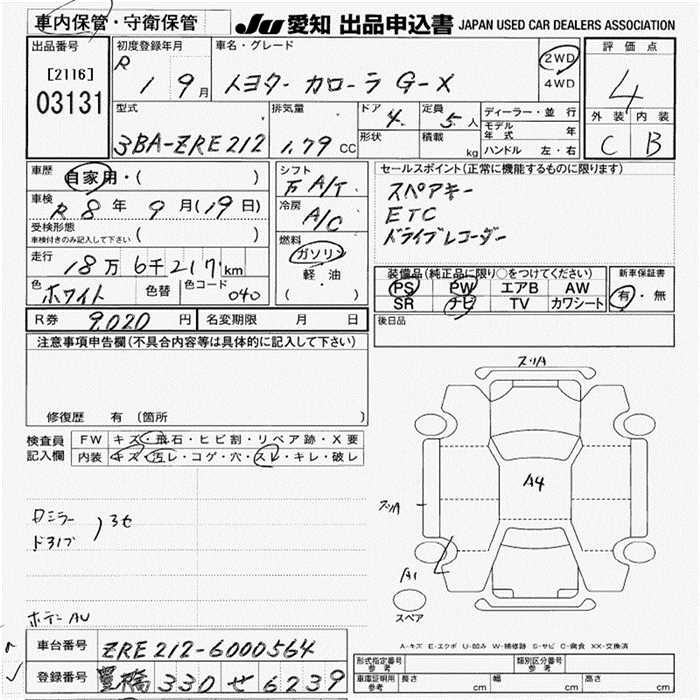 車内保管・守衛保管
JU 愛知 出品申込書 JAPAN USED CAR DEALERS ASSOCIATION
出品番号
[2116]
03131
初度登録年月
R 1 9月
車名・グレード
トヨタ カローラ G-X
2WD
4WD
評価点
4
外装 内装
C B
型式
3BA-ZRE212
排気量
1.79 CC
ドア
4
定員
5人
形状
積載
kg
ディーラー・並行
モデル年式 年
ハンドル 左・右
車歴
自家用・( )
車検
R 8年 9月(19日)
受検形態
車検付きのみ記入して下さい ( )
走行
18万6千217km
色
ホワイト
色替
色コード
040
シフト
F A/T
冷房
A/C
燃料
ガソリン
軽・油
( )
セールスポイント(正常に機能するものに限ります)
スペアキー
ETC
ドライブレコーダー
装備品(純正品に限り○をつけてください)
PS PW エアB AW
SR ナビ TV カワシート
新車保証書
有・無
R券 9,020円
名変期限 月 日
後日品
注意事項申告欄(不具合内容等は具体的に記入して下さい)
修復歴 有 〔箇所 〕
検査員記入欄
FW キズ・飛石・ヒビ割・リペア跡・X要
内装 キズ・汚レ・コゲ・穴・スレ・キレ・破レ
スリA
A4
スリA
A1
スペア
A-キズ E-エクボ U-凹み W-補修跡 S-サビ C-腐食 XX-交換済
車台番号 ZRE212-6000564
登録番号 豊橋 330 せ 6239
形式指定番号 参考
類別区分番号 参考
車庫証明用 参考 長さ cm 幅 cm 高さ cm